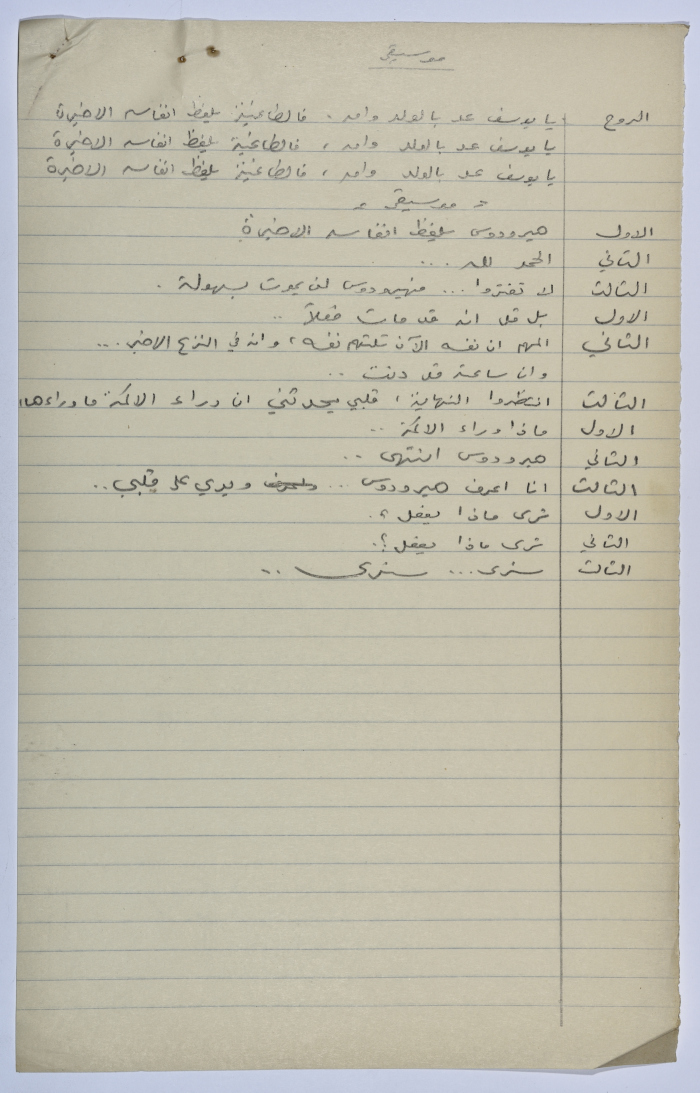 موسيقى
الروح يا يوسف عد بالولد وامه . فالطاغية يلفظ انفاسه الاخيرة
يا يوسف عد بالولد وامه ، فالطاغية يلفظ انفاسه الاخيرة
يا يوسف عد بالولد وامه ، فالطاغية يلفظ انفاسه الاخيرة
= موسيقى =
الاول هيرودوس يلفظ انفاسه الاخيرة
الثاني الحمد لله ....
الثالث لا تغتروا ... فهيرودوس لن يموت بسهولة .
الاول بل قل انه قد مات فعلاً ..
الثاني المهم ان نفسه الآن تلتهم نفسه ، وانه في النزع الاخير ...
وان ساعته قد دنت ..
الثالث انتظروا النهاية ، قلبي يحدثني ان وراء الاكمة ما وراءها
الاول ماذا وراء الاكمة ..
الثاني هيرودوس انتهى ..
الثالث انا اعرف هيرودوس ... ويدي على قلبي ..
الاول ترى ماذا يفعل ؟.
الثاني ترى ماذا يفعل ؟.
الثالث سنرى ... سنرى ..